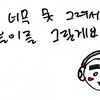 너무 못 그려서
분이를 그릴게요